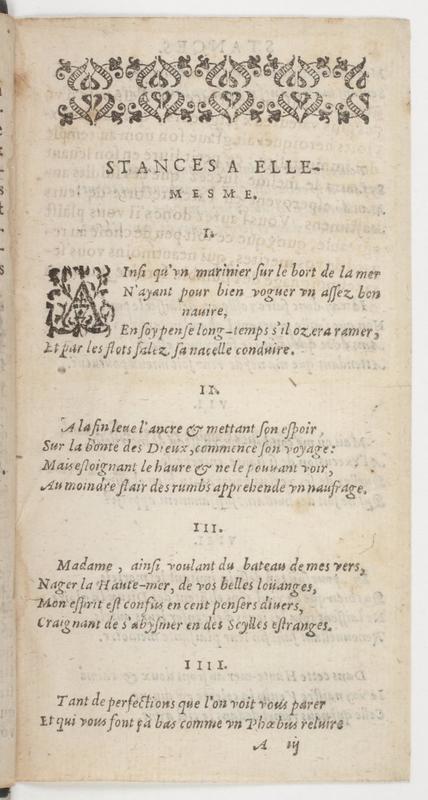 STANCES A ELLE-
MESME.
I.
AInsi qu'vn marinier sur le bort de la mer
N'ayant pour bien voguer vn assez bon
nauire,
En soy pense long-temps s'il ozera ramer,
Et par les flots salez sa nacelle conduire.
II.
A la fin leue l'ancre & mettant son espoir,
Sur la bonte des Dieux, commence son voyage:
Mais esloignant le haure & ne le pouuant voir,
Au moindre flair des rumbs apprehende vn naufrage.
III.
Madame, ainsi voulant du bateau de mes vers,
Nager la Haute-mer, de vos belles loüanges,
Mon esprit est confus en cent pensers diuers,
Craignant de s'abysmer en des Scylles estranges.
IIII.
Tant de perfections que l'on voit vous parer
Et qui vous font çà bas comme vn Phœbus reluire
A iij